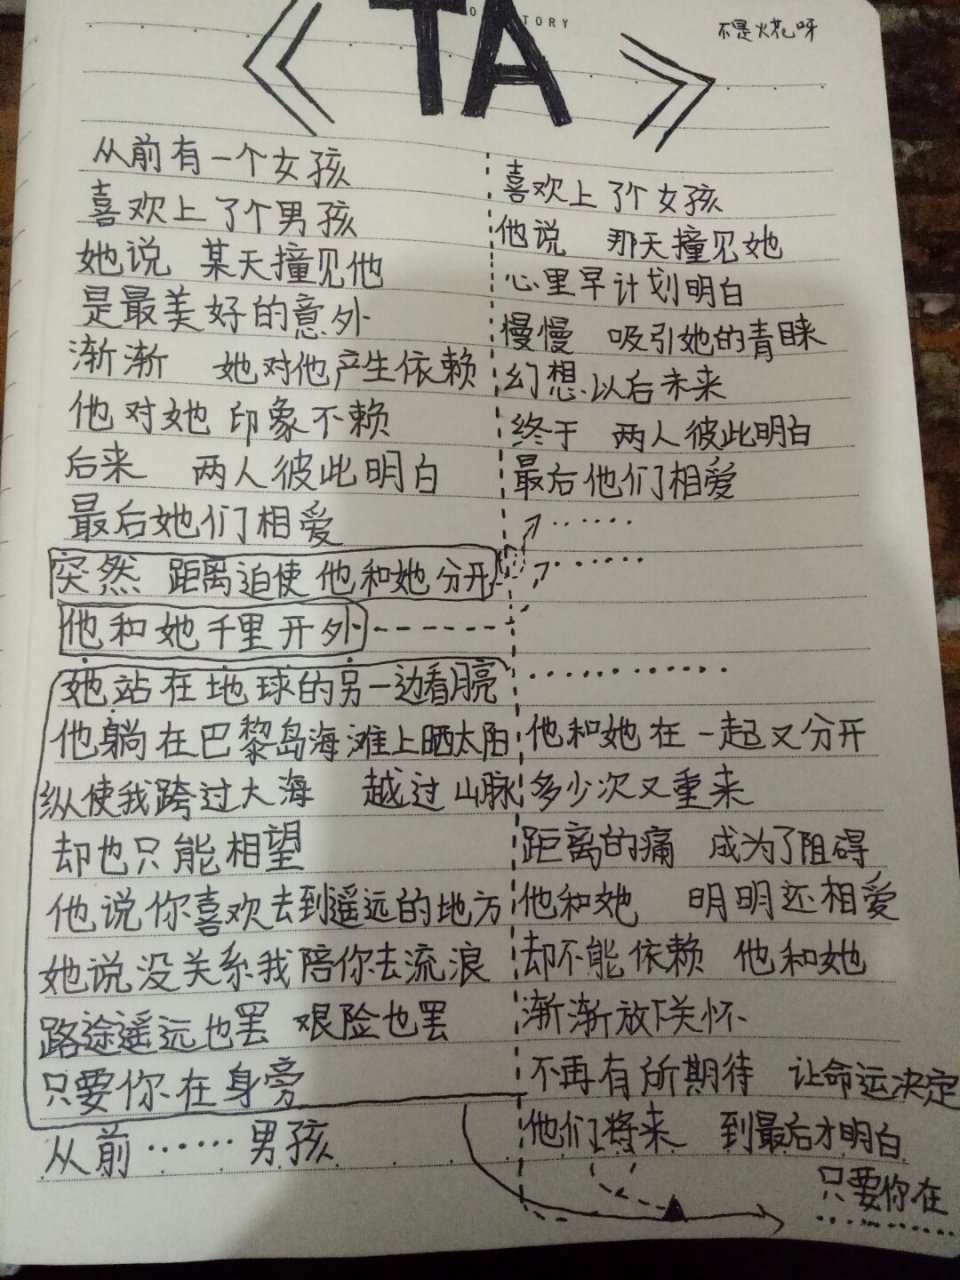 《TA》
TORY
不是火花呀
从前有一个女孩
喜欢上了个男孩
她说 某天撞见他
是最美好的意外
渐渐 她对他产生依赖
他对她 印象不赖
后来 两人彼此明白
最后她们相爱
突然 距离迫使他和她分开
他和她千里开外
她站在地球的另一边看月亮
他躺在巴黎岛海滩上晒太阳
纵使我跨过大海 越过山脉
却也只能相望
他说你喜欢去到遥远的地方
她说没关系我陪你去流浪
路途遥远也罢 艰险也罢
只要你在身旁
从前……男孩
喜欢上了个女孩
他说 那天撞见她
心里早计划明白
慢慢 吸引她的青睐
幻想以后未来
终于 两人彼此明白
最后他们相爱
……
……
…………
他和她在一起又分开
多少次又重来
距离的痛 成为了阻碍
他和她 明明还相爱
却不能依赖 他和她
渐渐放下关怀
不再有所期待 让命运决定
他们将来 到最后才明白
只要你在
…………